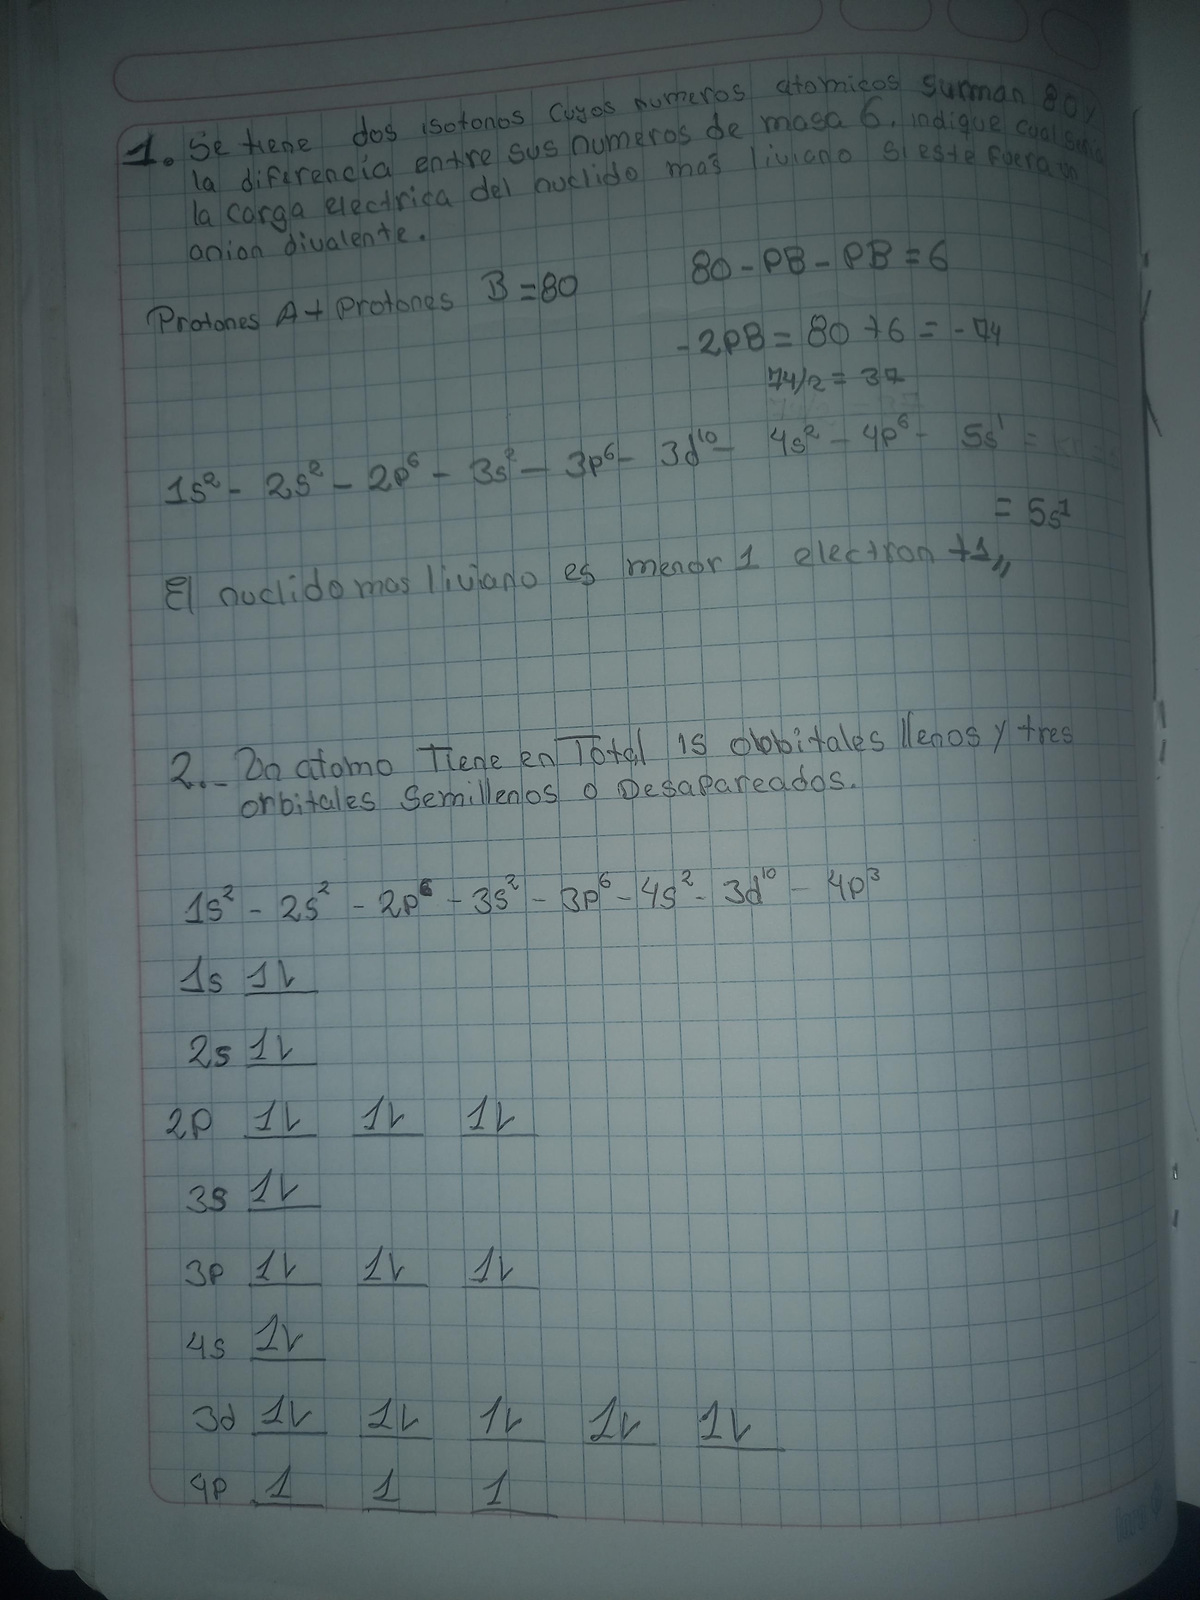 1. Se tiene dos isotonos cuyos numeros atomicos surman 80 y
la diferencia entre sus numeros de masa 6. indique cual seria
la carga electrica del nuclido mas liviano si este fuera un
anion divalente.
Protones A + Protones B = 80
80 - PB - PB = 6
- 2PB = 80 + 6 = - 74
74/2 = 37
1s² - 2s² - 2p⁶ - 3s² - 3p⁶ - 3d¹⁰ - 4s² - 4p⁶ - 5s¹ =
= 5s¹
El nuclido mas liviano es menor 1 electron +1,,
2.- Un atomo Tiene en Total 15 orbitales llenos y tres
orbitales Semillenos o Desapareados.
1s² - 2s² - 2p⁶ - 3s² - 3p⁶ - 4s² - 3d¹⁰ - 4p³
1s 1l
2s 1l
2p 1l 1l 1l
3s 1l
3p 1l 1l 1l
4s 1l
3d 1l 1l 1l 1l 1l
4p 1 1 1